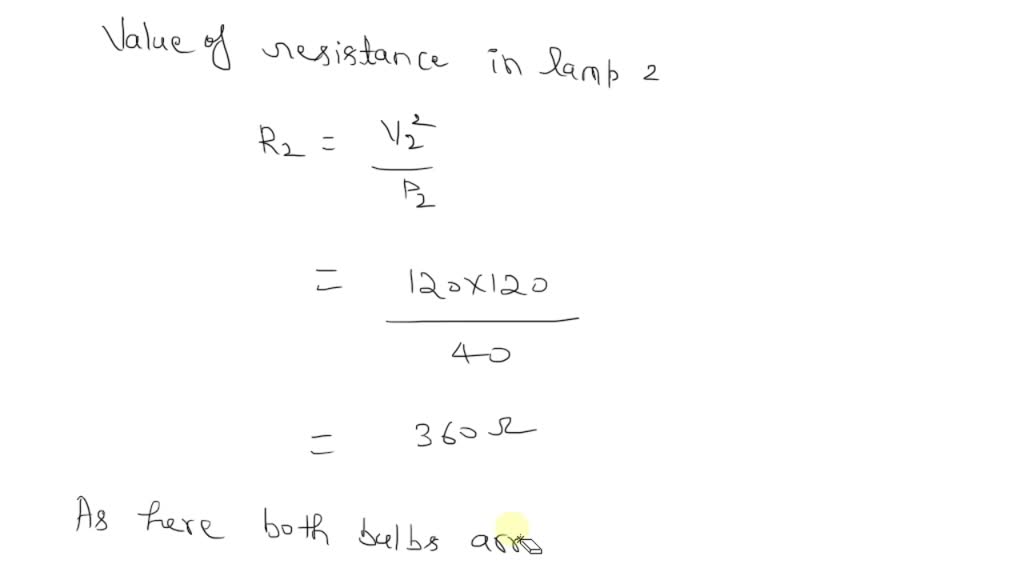 Value of resistance in lamp 2
R2 = V2²
P2
= 120×120
40
= 360 Ω
As here both bulbs arr